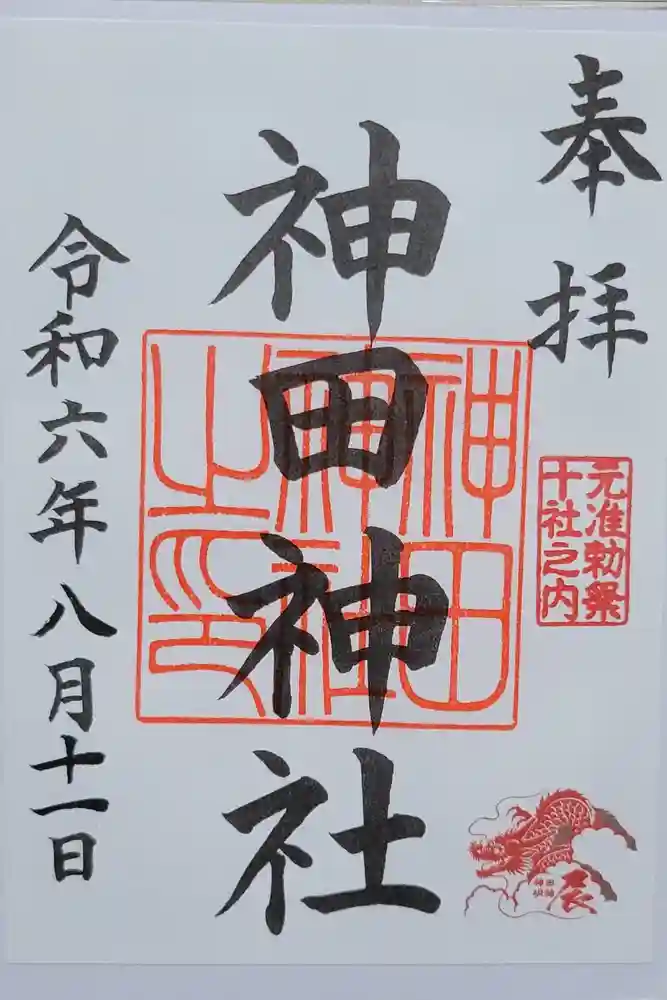 奉拝
元准勅祭
十社之内
神田神社
神田
神社
之印
辰
神田
明神
令和六年八月十一日